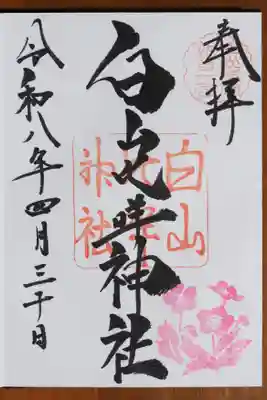 奉拝
白山比咩神社
白山
比咩
神社
令和八年四月三十日